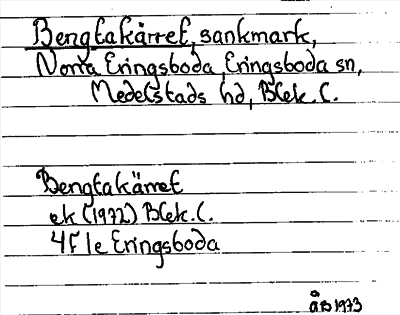 Bengtakärret, sankmark,
Norra Eringsboda, Eringsboda sn,
Medelstads hd, Blek. l.
Bengtakärret
ek (1972) Blek. l.
4F 1e Eringsboda
ÅB 1973